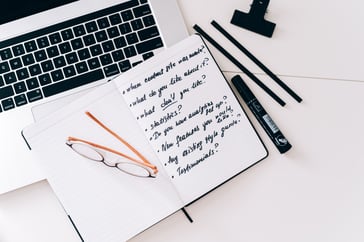 - when current site was created?
- what do you like about it?
- what don't you like?
- Statistics?
- Do you have analytics set up?
- New features you would like?
- Any existing style guide?
- Testimonials?